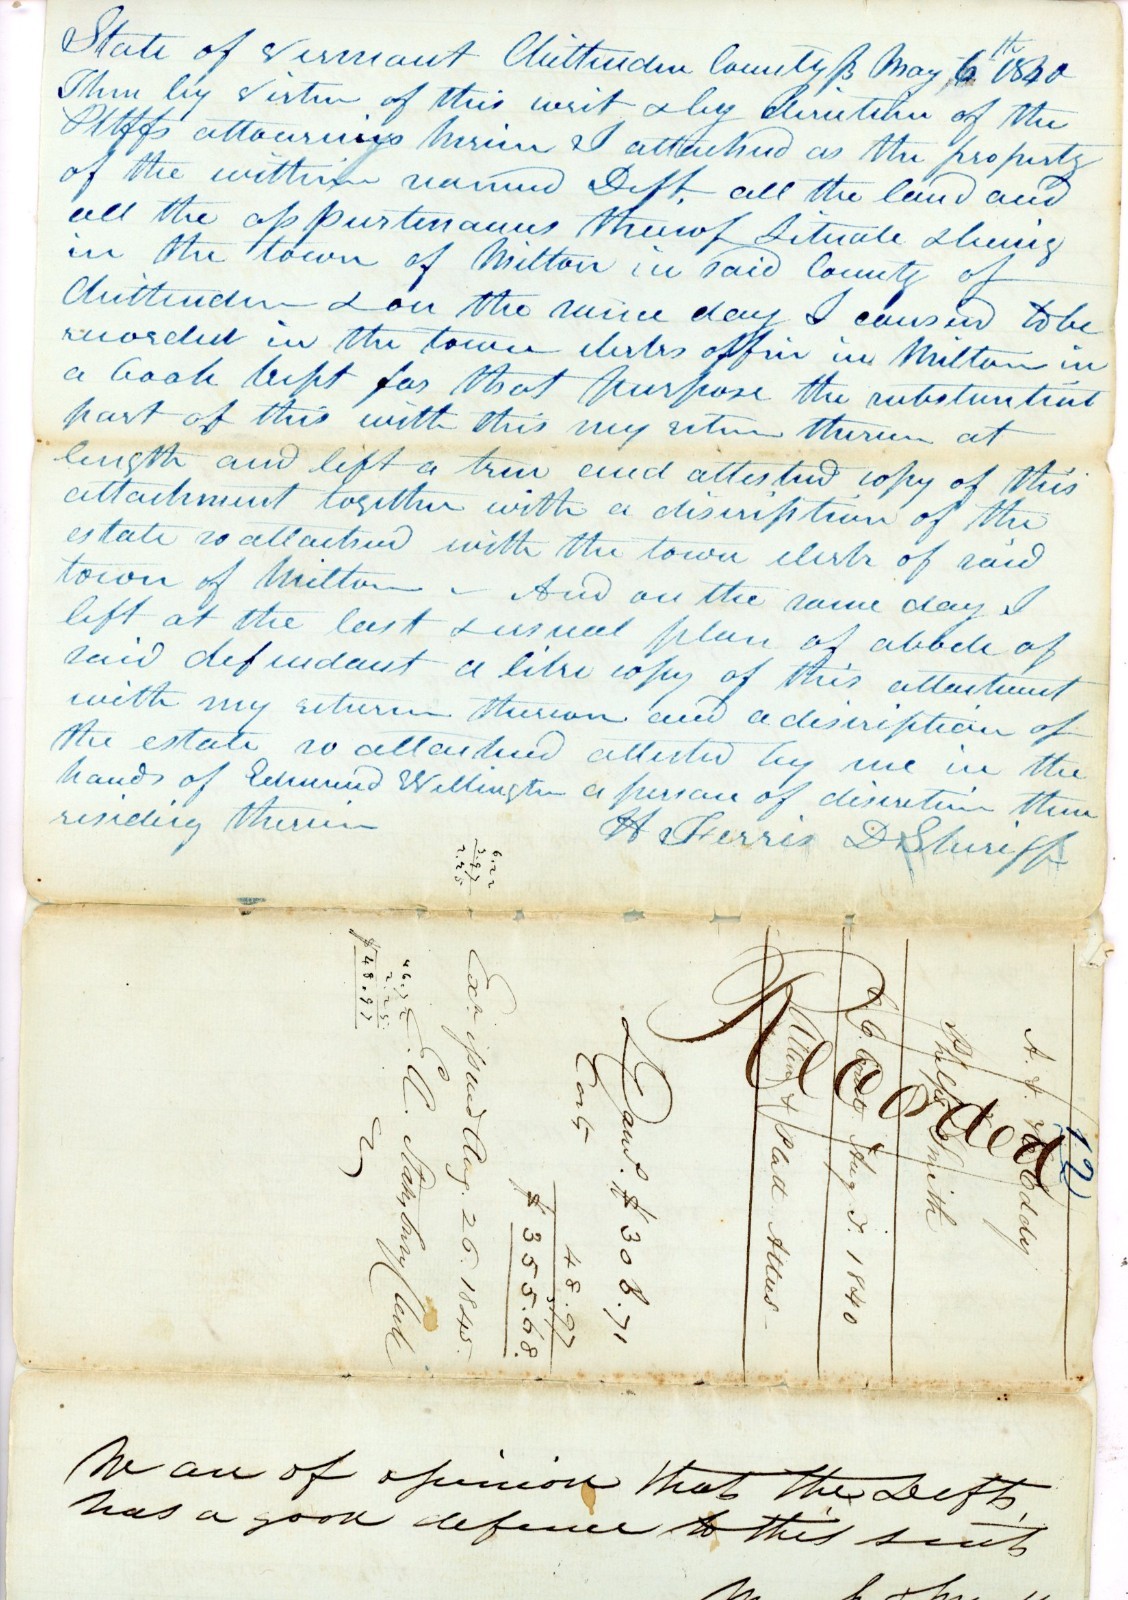 State of Vermont Chittenden County ss May 6th 1840
Then by virtue of this writ & by direction of the
Pltffs attourneys herein I attached as the property
of the within named Deft. all the land and
all the appurtenances thereof situate & being
in the town of Milton in said County of
Chittenden & on the same day I caused to be
recorded in the town clerks office in Milton in
a book kept for that purpose the substantial
part of this with this my return thereon at
length and left a true and attested copy of this
attachment together with a discription of the
estate so attached with the town clerk of said
town of Milton – And on the same day I
left at the last & usual place of abode of
said defendant a like copy of this attachment
with my return thereon and a discription of
the estate so attached attested by me in the
hands of Edmund Wellington a person of discretion then
residing therein H Ferris D Sheriff
6.22
3.97
2.25
12)
Eddy
Phelps Smith
Aug. T. 1840
& Platt Attus –
Recorded
Dam. $ 306.71
Cost 48.97
$ 355.68.
Exn. issued Aug. 26. 1845.
Clerk
46.72
2.25
$48.97
We are of opinion that the Defts,
has a good defence to this suit